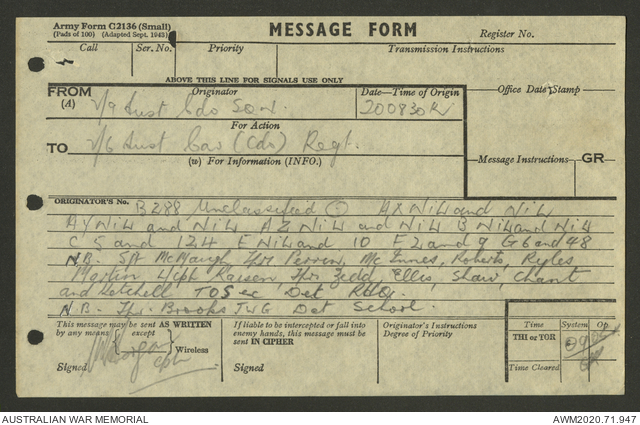 Army Form C2136 (Small)
(Pads of 100) (Adapted Sept. 1943)
MESSAGE FORM
Register No.
Call Ser. No. Priority Transmission Instructions
ABOVE THIS LINE FOR SIGNALS USE ONLY
FROM (A) Originator Date—Time of Origin Office Date Stamp
2/9 Aust Cdo SQN. 200830K
For Action
TO 2/6 Aust Cav (Cdo) Regt.
(w) For Information (INFO.) Message Instructions GR
ORIGINATOR'S No. B288 Unclassified AX NiL and NiL
AY NiL and NiL AZ NiL and NiL B NiL and NiL
C 5 and 124 E NiL and 10 F 2 and 9 G 6 and 48
N.B. Sjt McMaugh Tpr Perrin, McInnes, Roberts, Ryles
Martin L/cpl Tpr. Zedd, Ellis, Shaw, Chant
and TOS ec Det RHQ.
N.B. Tpr. Brooks JWG Det School.
This message may be sent AS WRITTEN
by any means except Wireless
Signed
If liable to be intercepted or fall into
enemy hands, this message must be
sent IN CIPHER
Signed
Originator's Instructions
Degree of Priority
Time System Op
THI or TOR
Time Cleared
AUSTRALIAN WAR MEMORIAL AWM2020.71.947